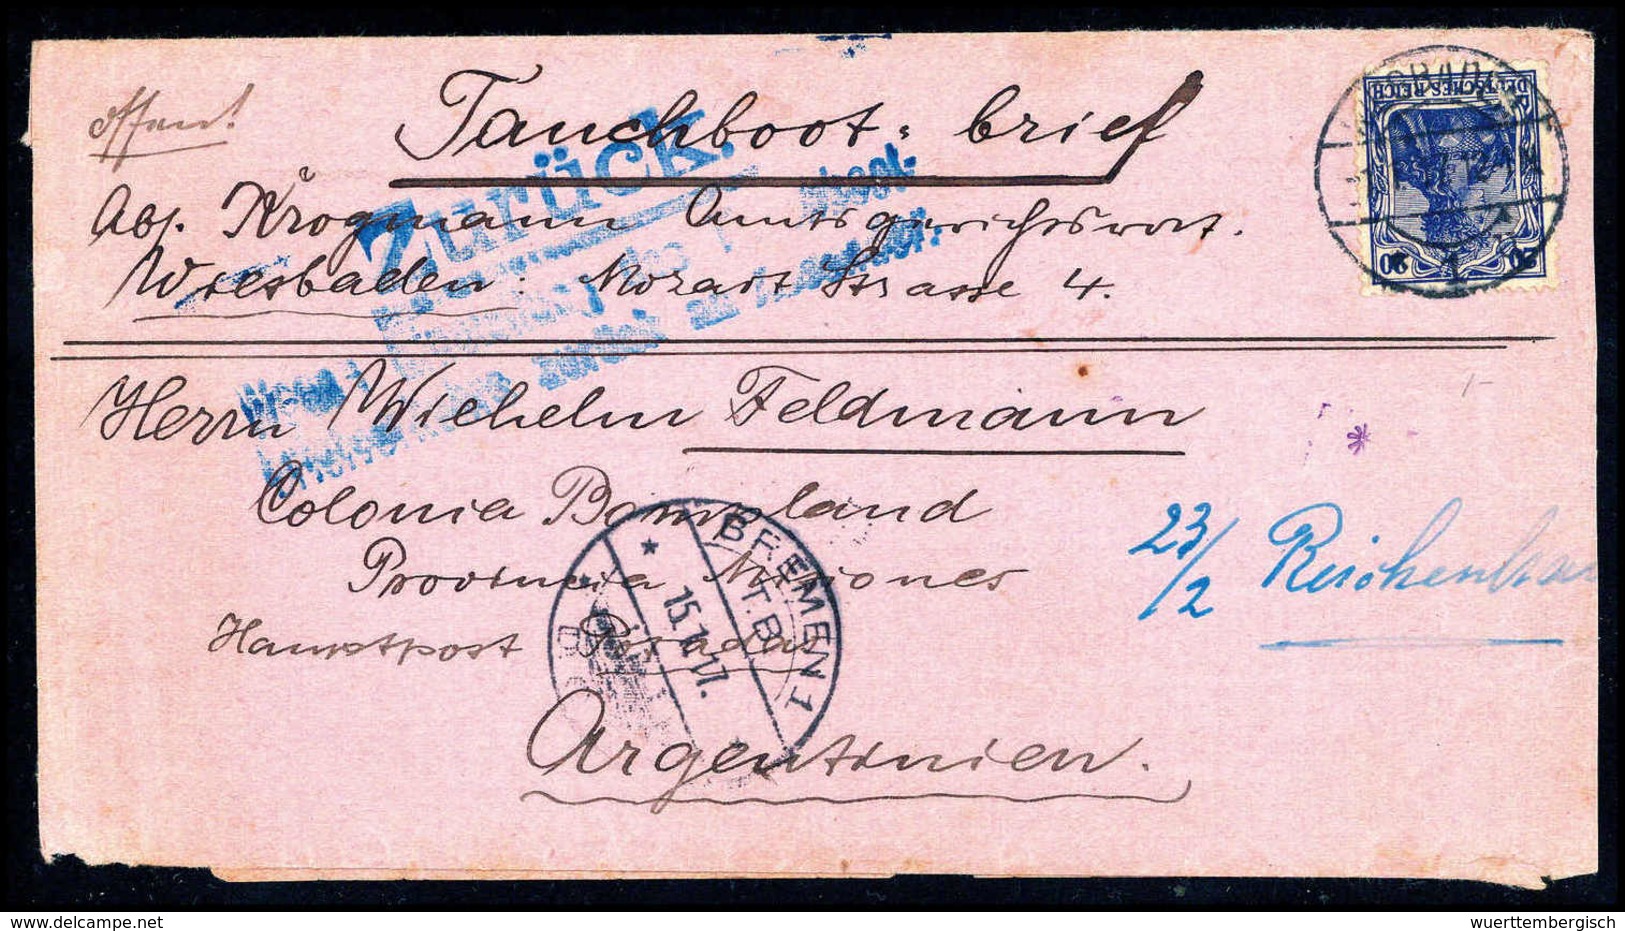 offen!
Tauchboot-brief
Abs. Krogmann Amtsgerichtswwt.
Wiesbaden: Mozart Strasse 4.
Zurück.
zurück
Herrn Wilhelm Feldmann
Colonia Bompland
Provincia Misiones
Hauptpost Posadas
Argentinien.
BREMEN 1
T.B.
15.1.17.
23/2
DEUTSCHES REICH
20 20
wuerttembergisch